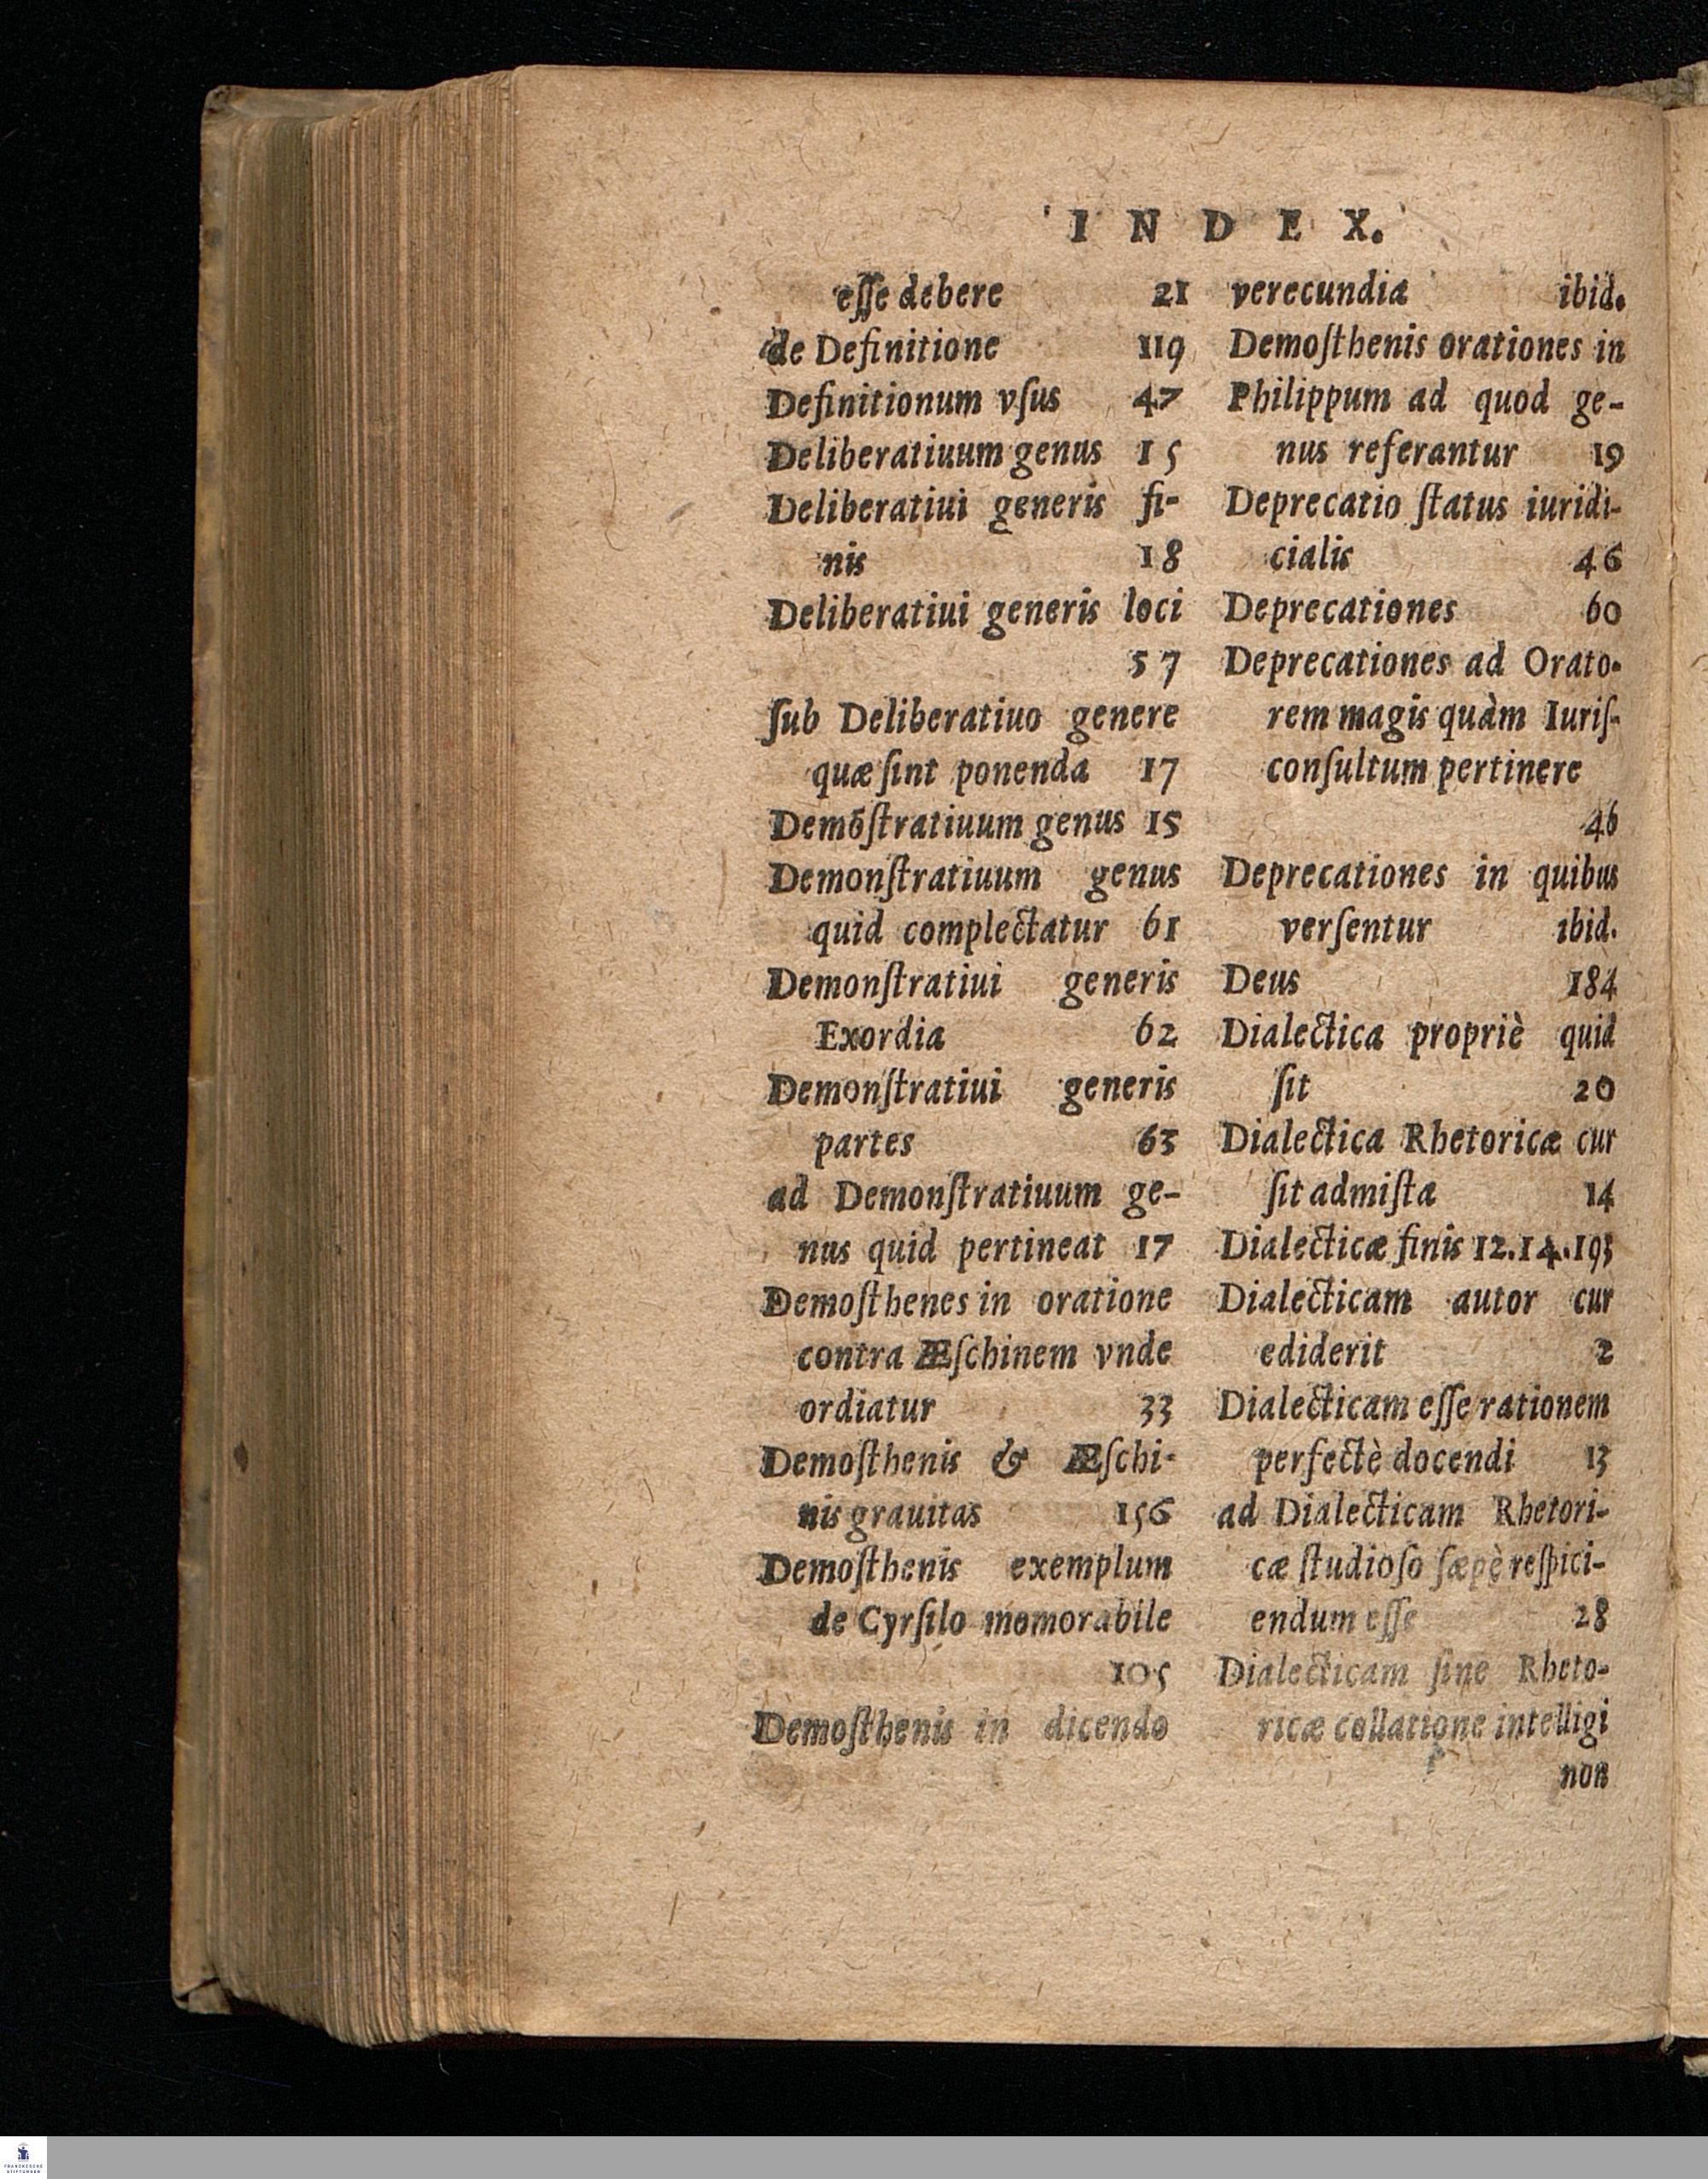 INDEX.
eſſe debere 21
de Definitione 119
Definitionum vſus 47
Deliberatiuum genus 15
Deliberatiui generis fi-
nis 18
Deliberatiui generis loci
57
ſub Deliberatiuo genere
quæ ſint ponenda 17
Demōſtratiuum genus 15
Demonſtratiuum genus
quid complectatur 61
Demonſtratiui generis
Exordia 62
Demonſtratiui generis
partes 63
ad Demonſtratiuum ge-
nus quid pertineat 17
Demoſthenes in oratione
contra Æſchinem vnde
ordiatur 33
Demoſthenis & Æſchi-
nis grauitas 156
Demoſthenis exemplum
de Cyrſilo memorabile
105
Demoſthenis in dicendo
verecundia ibid.
Demoſthenis orationes in
Philippum ad quod ge-
nus referantur 19
Deprecatio ſtatus iuridi-
cialis 46
Deprecationes 60
Deprecationes ad Orato-
rem magis quàm Iuriſ-
conſultum pertinere
46
Deprecationes in quibus
verſentur ibid.
Deus 184
Dialectica propriè quid
ſit 20
Dialectica Rhetoricæ cur
ſit admiſta 14
Dialecticæ finis 12.14.193
Dialecticam autor cur
ediderit 2
Dialecticam eſſe rationem
perfectè docendi 13
ad Dialecticam Rhetori-
cæ ſtudioſo ſæpè reſpici-
endum eſſe 28
Dialecticam ſine Rheto-
ricæ collatione intelligi
non
FRANCKESCHE
STIFTUNGEN